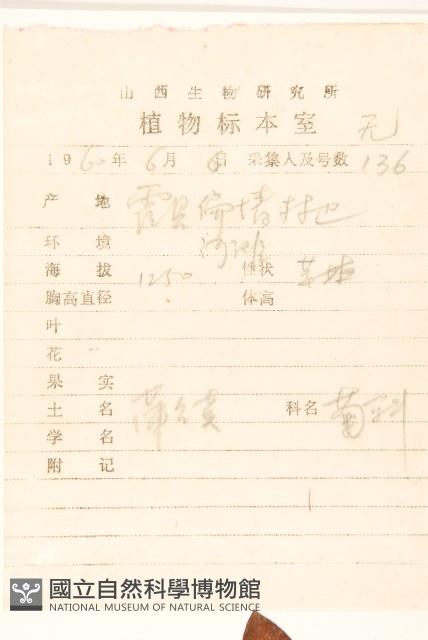 山西生物研究所
植物标本室 无
1960年6月6日 采集人及号数 136
产地 霍县 村
环境 河滩
海拔 1250 性状 草本
胸高直径 体高
叶
花
果实
土名 蒲公英 科名 菊科
学名
附记
國立自然科學博物館
NATIONAL MUSEUM OF NATURAL SCIENCE